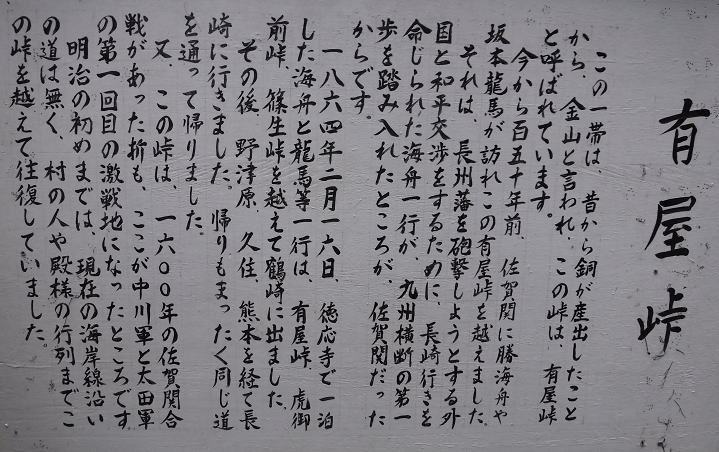 有屋峠
この一帯は、昔から銅が産出したこと
から、金山と言われ、この峠は、有屋峠
と呼ばれています。
今から百五十年前、佐賀関に勝海舟や
坂本龍馬が訪れこの有屋峠を越えました。
それは、長州藩を砲撃しようとする外
国と和平交渉をするために、長崎行きを
命じられた海舟一行が、九州横断の第一
歩を踏み入れたところが、佐賀関だった
からです。
一八六四年二月一六日、徳応寺で一泊
した海舟と龍馬等一行は、有屋峠、虎御
前峠、篠生峠を越えて鶴崎に出ました。
その後、野津原、久住、熊本を経て長
崎に行きました。帰りもまったく同じ道
を通って帰りました。
又、この峠は、一六〇〇年の佐賀関合
戦があった折も、ここが中川軍と太田軍
の第一回目の激戦地になったところです
明治の初めまでは、現在の海岸線沿い
の道は無く、村の人や殿様の行列までこ
の峠を越えて往復していました。